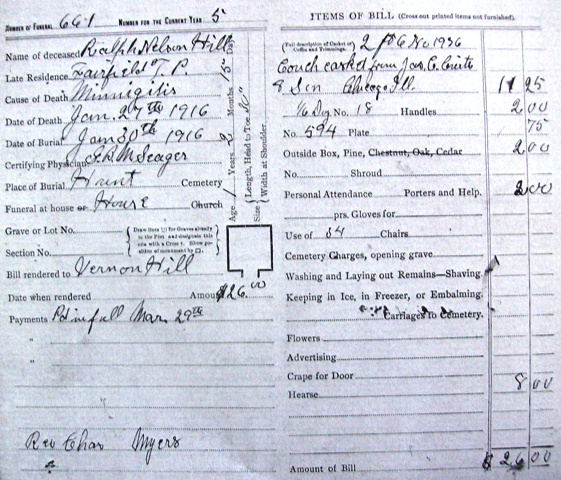 NUMBER OF FUNERAL 661 NUMBER FOR THE CURRENT YEAR 5
Name of deceased Ralph Nelson Hill
Late Residence Fairfield T.P.
Cause of Death Minnigitis
Date of Death Jan. 27th 1916
Date of Burial Jan 30th 1916
Certifying Physician McSeager
Place of Burial Hunt Cemetery
Funeral at house or House Church
Age 1 Years 2 Months 15 Days
Size Length, Head to Toe
Width at Shoulder
Grave or Lot No.
Section No.
Draw lines for Graves already in the Plot and designate this one with a Cross †. Show position of monument by □.
Bill rendered to Vernon Hill
Date when rendered Amount $26.00
Payments Pd in full Mar. 29th
"
"
Rev Chas Myers
ITEMS OF BILL (Cross out printed items not furnished).
(Full description of Casket or Coffin and Trimmings. 2 ft 6 No 1936
Couch casket from Jas. C.
& Son Chicago Ill. 11 25
No. 18 Handles 2 00
No. 594 Plate 75
Outside Box, Pine, Chestnut, Oak, Cedar 2 00
No. Shroud
Personal Attendance Porters and Help. 2 00
prs. Gloves for
Use of 34 Chairs
Cemetery Charges, opening grave
Washing and Laying out Remains—Shaving.
Keeping in Ice, in Freezer, or Embalming.
Carriages to Cemetery.
Flowers
Advertising
Crape for Door 8 00
Hearse
Amount of Bill $ 26 00